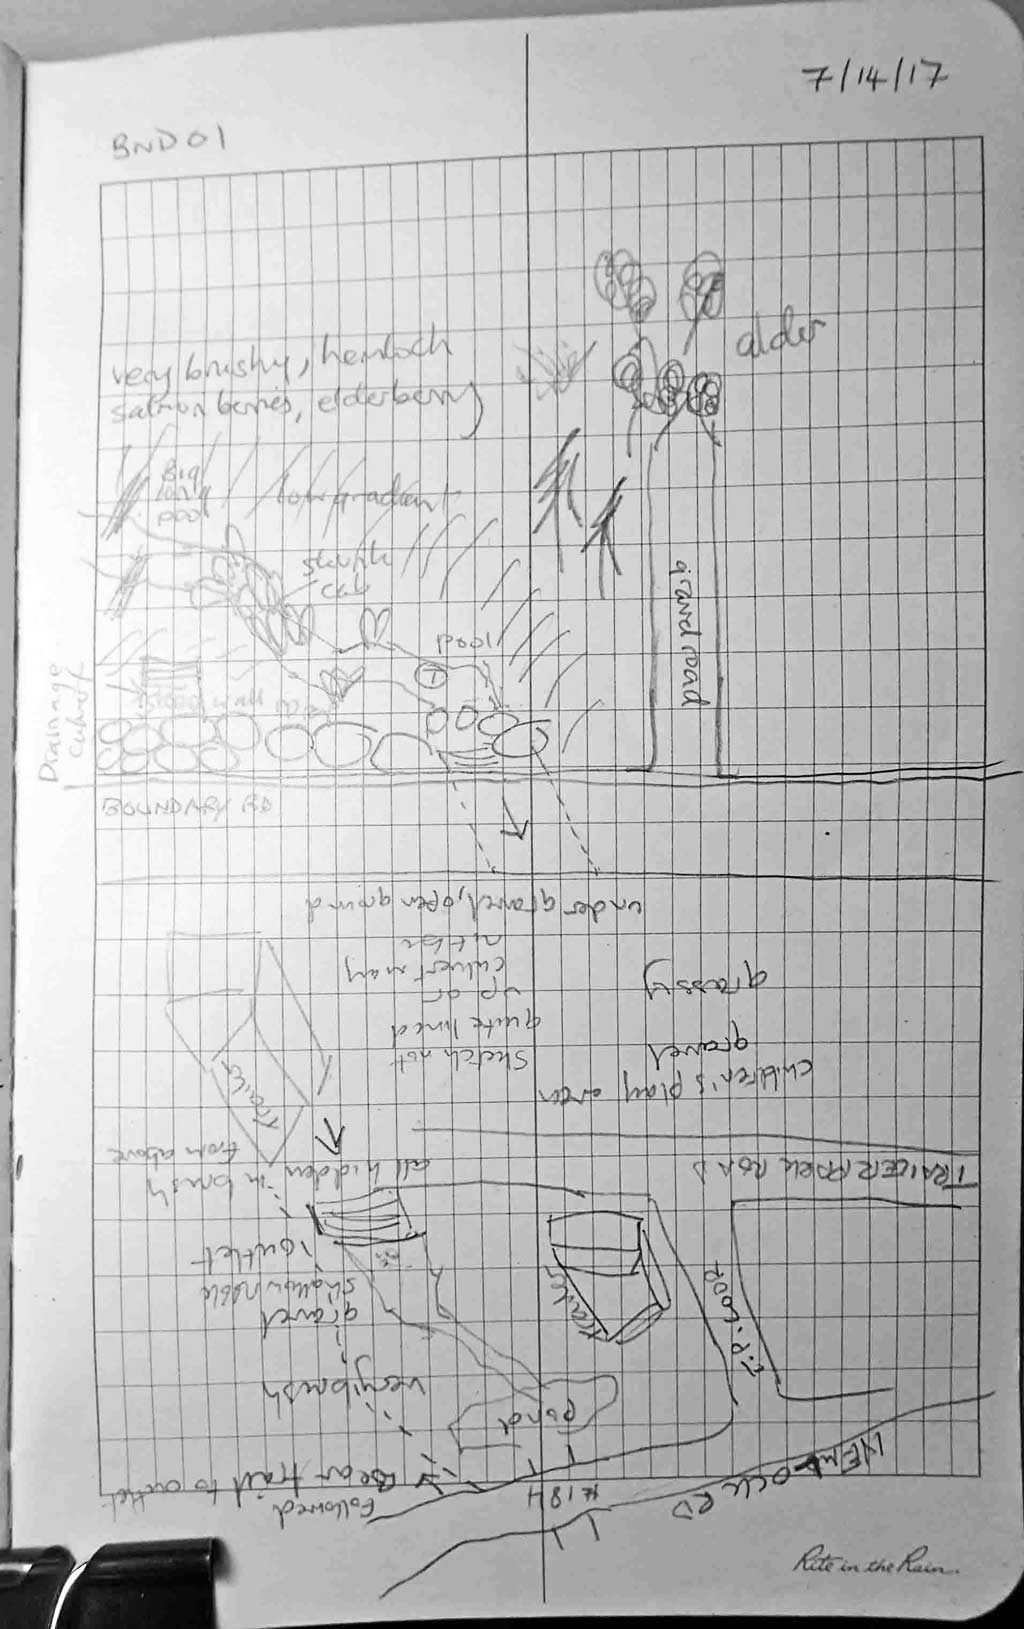 7/14/17
BND01
alder
very brushy, hemlock
salmon berries, elderberry
Big
long
pool
low gradient
skunk
cab
pool
gravel road
Drainage
culvert
BOUNDARY RD
under gravel, open ground
grassy
gravel
children's play area
sketch not
quite lined
up or
culvert may
not be
trailer
TRAILER PARK ROAD
all hidden in brush
from above
outlet
shallow hole
gravel
trailer
T.P. LOOP
very brushy
pond
Followed
Bear trail to outlet
HEMLOCK RD
Rite in the Rain.